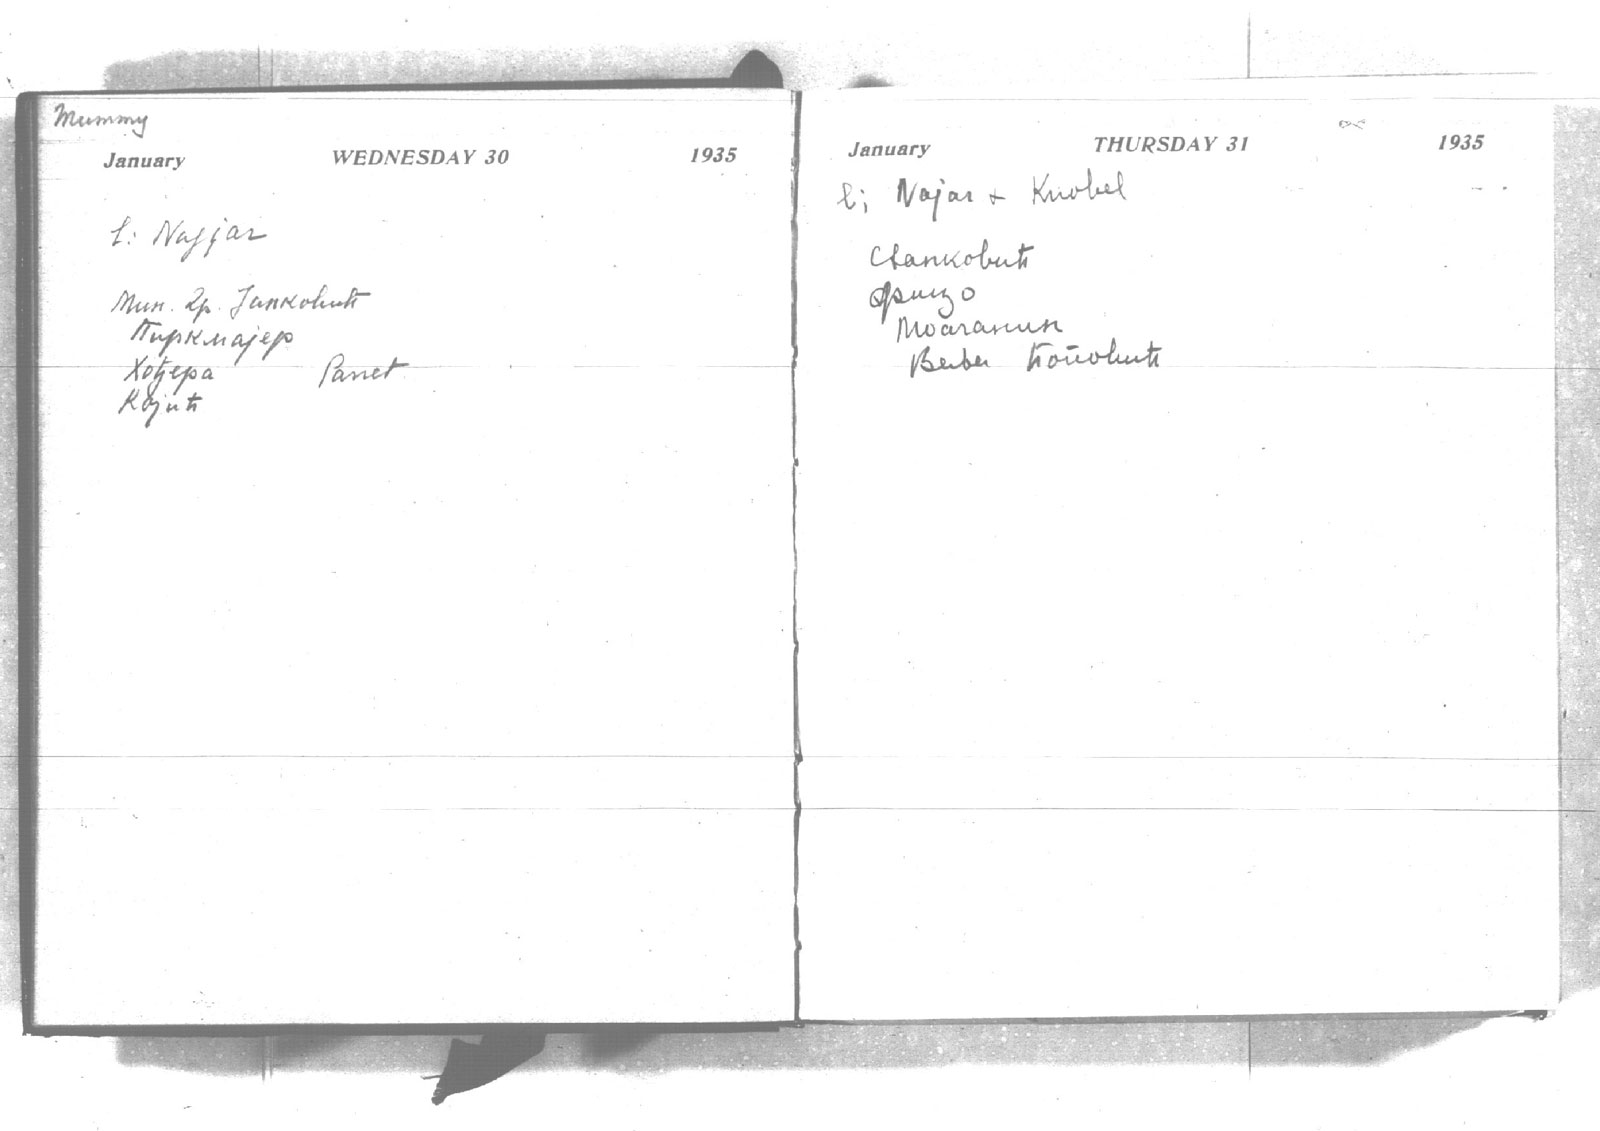 Mummy
January WEDNESDAY 30 1935
l: Najjar
Мин. Гр. Јанковић
Пиркмајер
Хођера Parret
Којић
January THURSDAY 31 1935
l; Najar + Knobel
Станковић
Фрицо
Моачанин